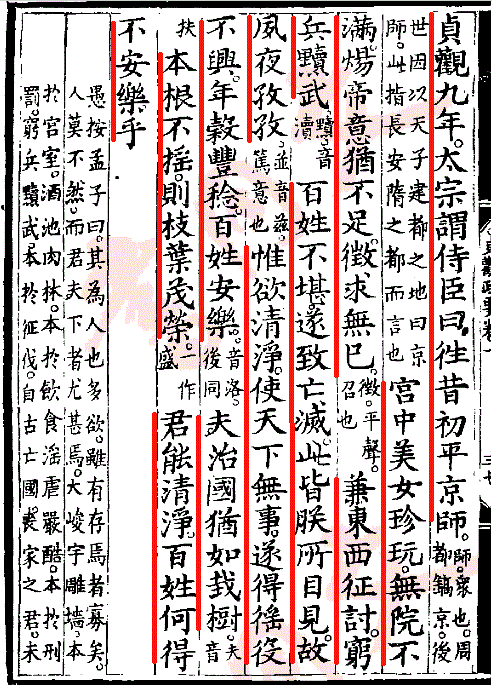 貞觀九年。太宗謂侍臣曰。徃昔初平京師。師。衆也。周都鎬京。後
世因以天子建都之地曰京師。此指長安隋之都而言也宮中美女珍玩。無院不
滿。煬帝意猶不足。徵求無已。徵。平聲。召也兼東西征討。窮
兵黷武黷。音瀆百姓不堪。遂致亡滅。此皆朕所目見。故
夙夜孜孜並音兹。篤意也惟欲清淨。使天下無事。遂得徭役
不興。年穀豐稔。百姓安樂。音洛。後同夫治國猶如栽樹。夫音
扶本根不搖。則枝葉茂榮。一作盛君能清淨。百姓何得
不安樂乎
愚按孟子曰。其為人也多欲。雖有存焉者寡矣。
人莫不然。而君天下者尤甚焉。大峻宇雕墻。本
於宮室。酒池肉林。本於飲食。淫虐嚴酷。本於刑
罰。窮兵黷武。本於征伐。自古亡國喪家之君。未